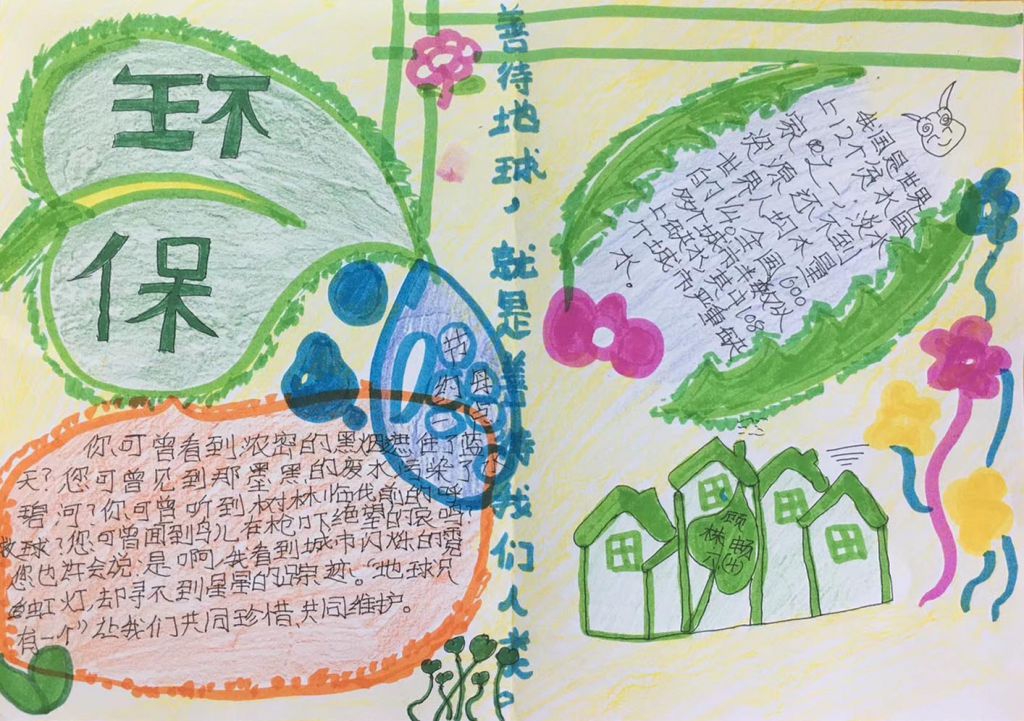 环
保
善待地球，就是善待我们人类。
节约
每
你可曾看到浓密的黑烟遮住了蓝
天？您可曾见到那墨黑的废水污染了
碧河？你可曾听到树林临伐前的呼
救球？您可曾闻到鸟儿在枪口下绝望的哀鸣？
您也许会说：是啊，我看到城市闪烁的霓
虹灯，却寻不到星星的踪迹。“地球只
有一个”让我们共同珍惜，共同维护。
我国是世界
上12个贫水国
家之一，淡水
资源还不到
世界人均水量
的1/4。全国600
多个城市半数以
上缺水，其中108
个城市严重缺
水。
顾
林畅